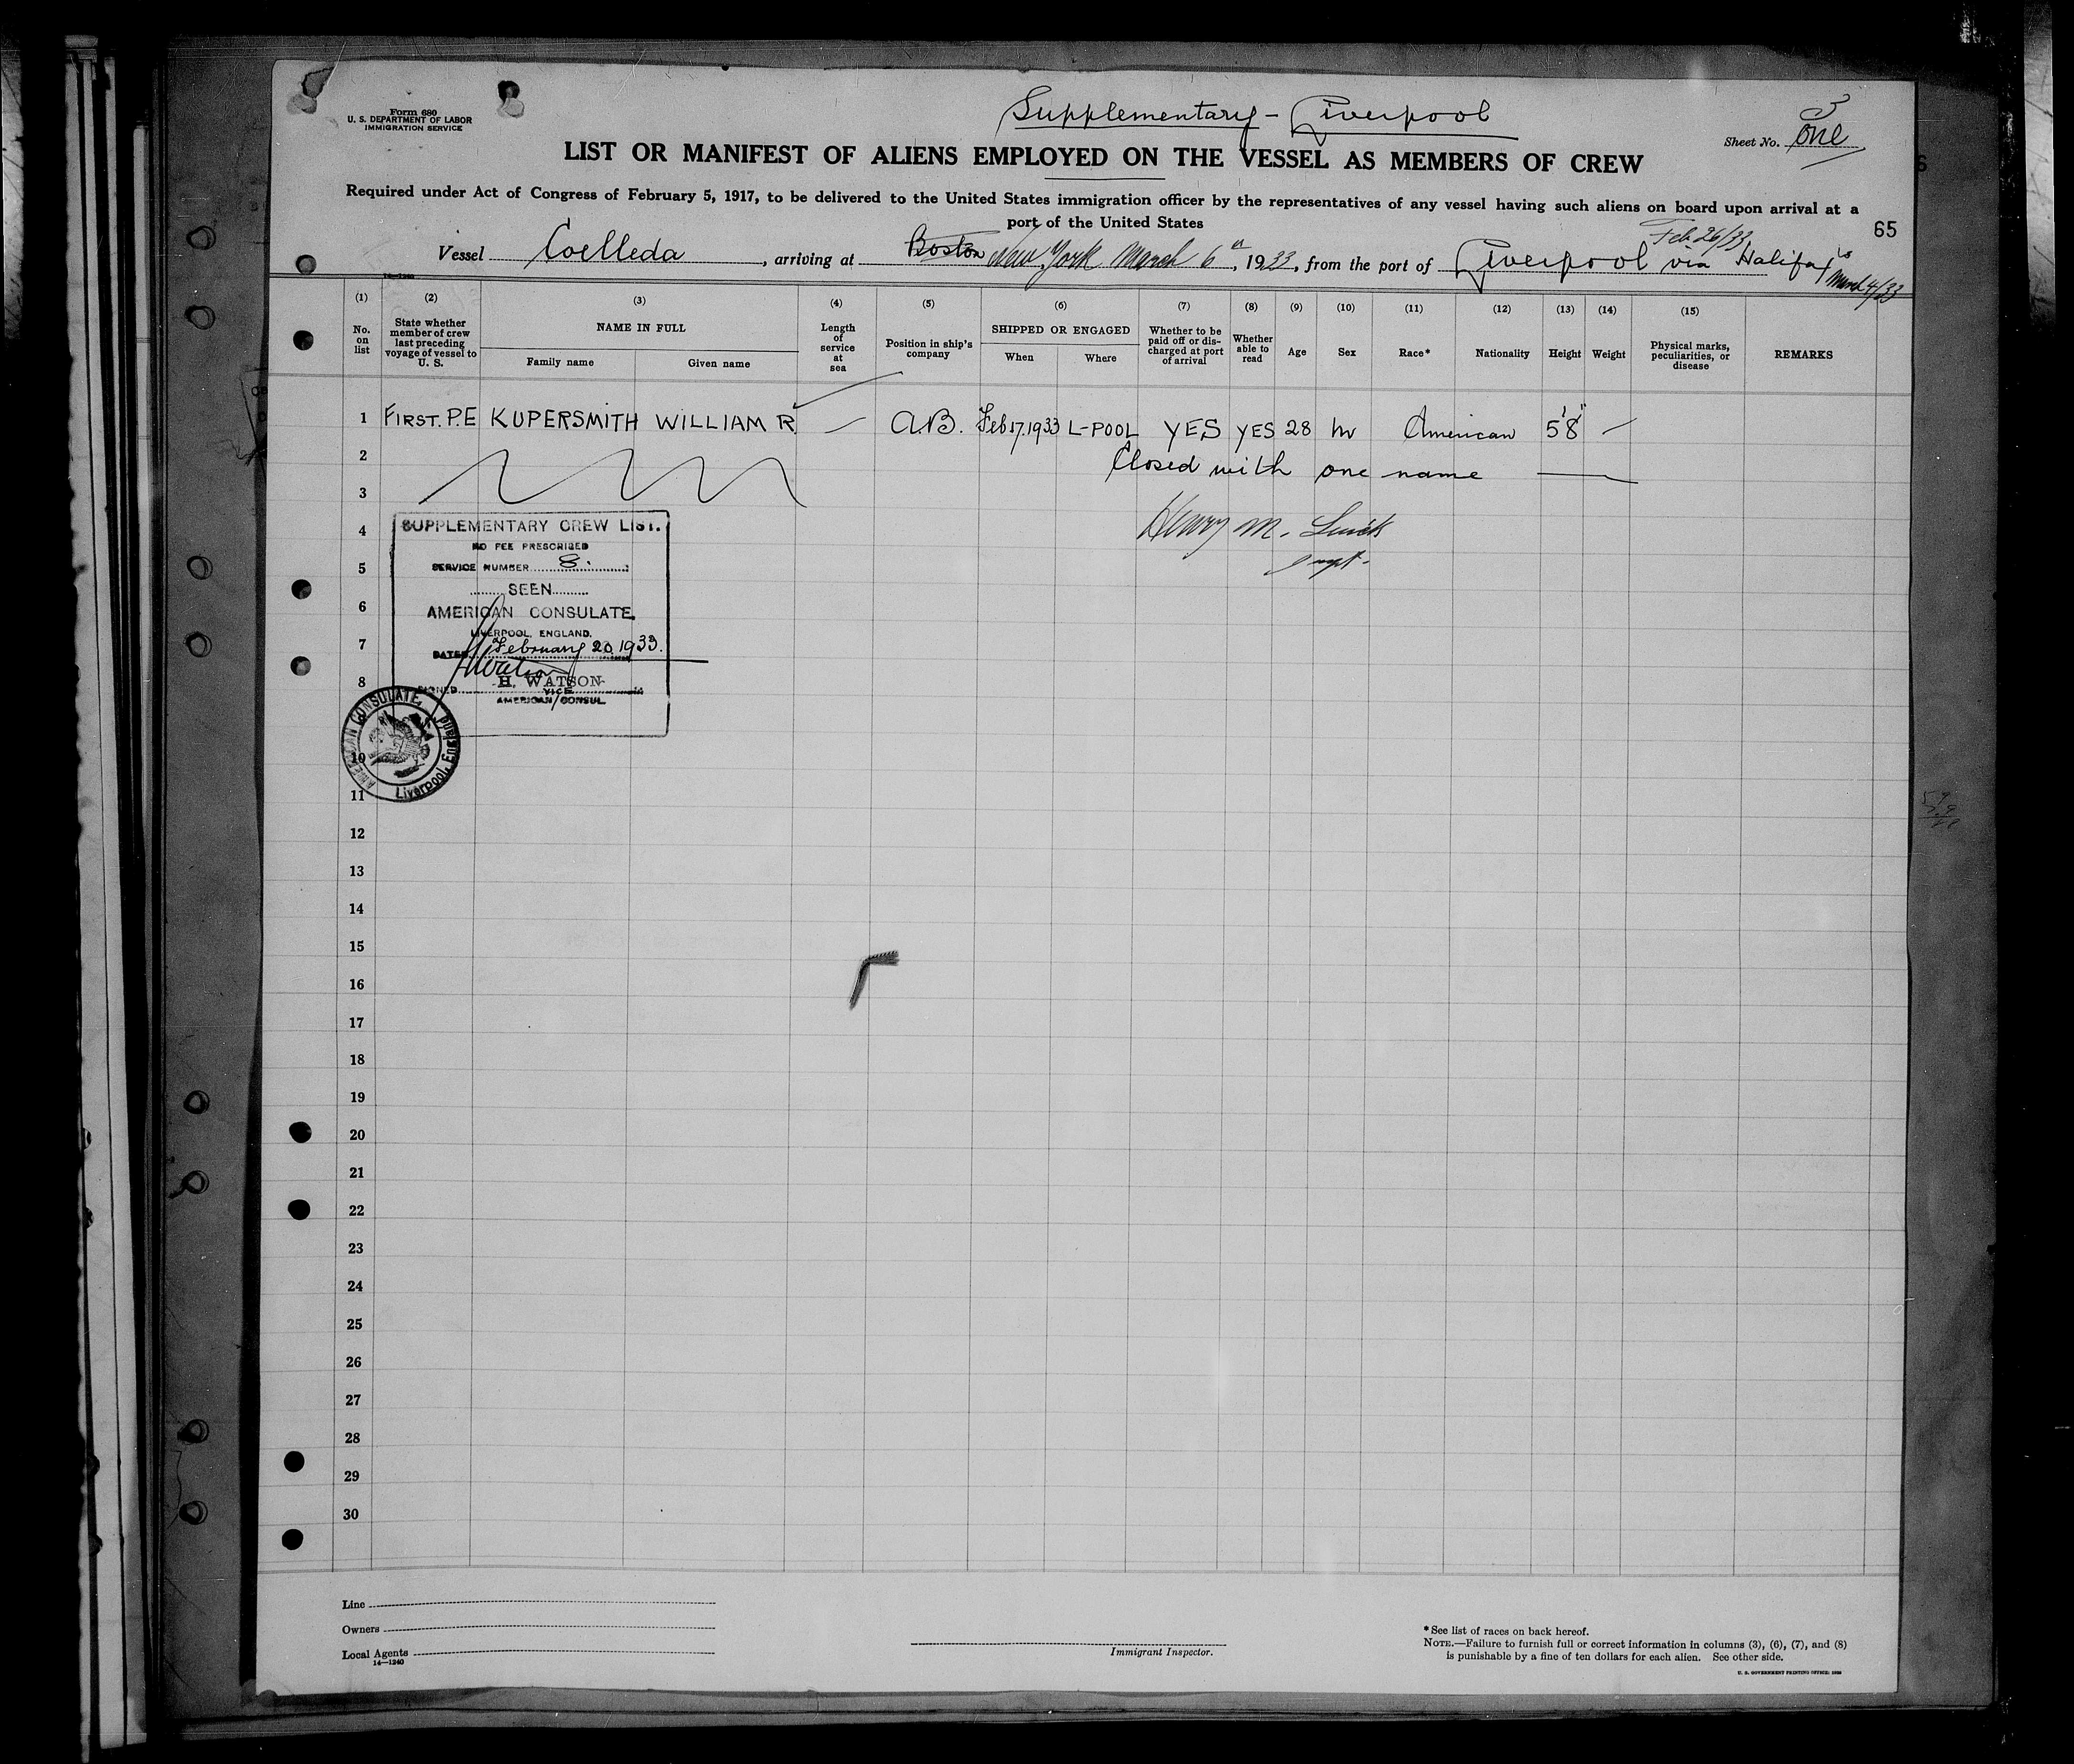 Form 680
U. S. DEPARTMENT OF LABOR
IMMIGRATION SERVICE
Supplementary - Liverpool
3
Sheet No. One
LIST OR MANIFEST OF ALIENS EMPLOYED ON THE VESSEL AS MEMBERS OF CREW
Required under Act of Congress of February 5, 1917, to be delivered to the United States immigration officer by the representatives of any vessel having such aliens on board upon arrival at a
port of the United States
65
Feb 26/33
Vessel Coelleda, arriving at Boston New York March 6th, 1933, from the port of Liverpool via Halifax
March 4/33
(1) (2) (3) (4) (5) (6) (7) (8) (9) (10) (11) (12) (13) (14) (15)
No. on list
State whether member of crew last preceding voyage of vessel to U. S.
NAME IN FULL
Family name Given name
Length of service at sea
Position in ship's company
SHIPPED OR ENGAGED
When Where
Whether to be paid off or discharged at port of arrival
Whether able to read
Age
Sex
Race*
Nationality
Height
Weight
Physical marks, peculiarities, or disease
REMARKS
1 FIRST. P.E KUPERSMITH WILLIAM R. — A.B. Feb 17.1933 L-POOL YES YES 28 M American 5'8" —
2 Closed with one name
3
4 Henry M.
5
6
7
8
10
11
12
13
14
15
16
17
18
19
20
21
22
23
24
25
26
27
28
29
30
SUPPLEMENTARY CREW LIST.
NO FEE PRESCRIBED
SERVICE NUMBER 8.
SEEN
AMERICAN CONSULATE.
LIVERPOOL, ENGLAND.
DATED February 20, 1933.
HWatson
H. WATSON
SIGNED
VICE
AMERICAN CONSUL
AMERICAN CONSULATE,
Liverpool, England
Line
Owners
Local Agents
14—1240
Immigrant Inspector.
* See list of races on back hereof.
NOTE.—Failure to furnish full or correct information in columns (3), (6), (7), and (8)
is punishable by a fine of ten dollars for each alien. See other side.